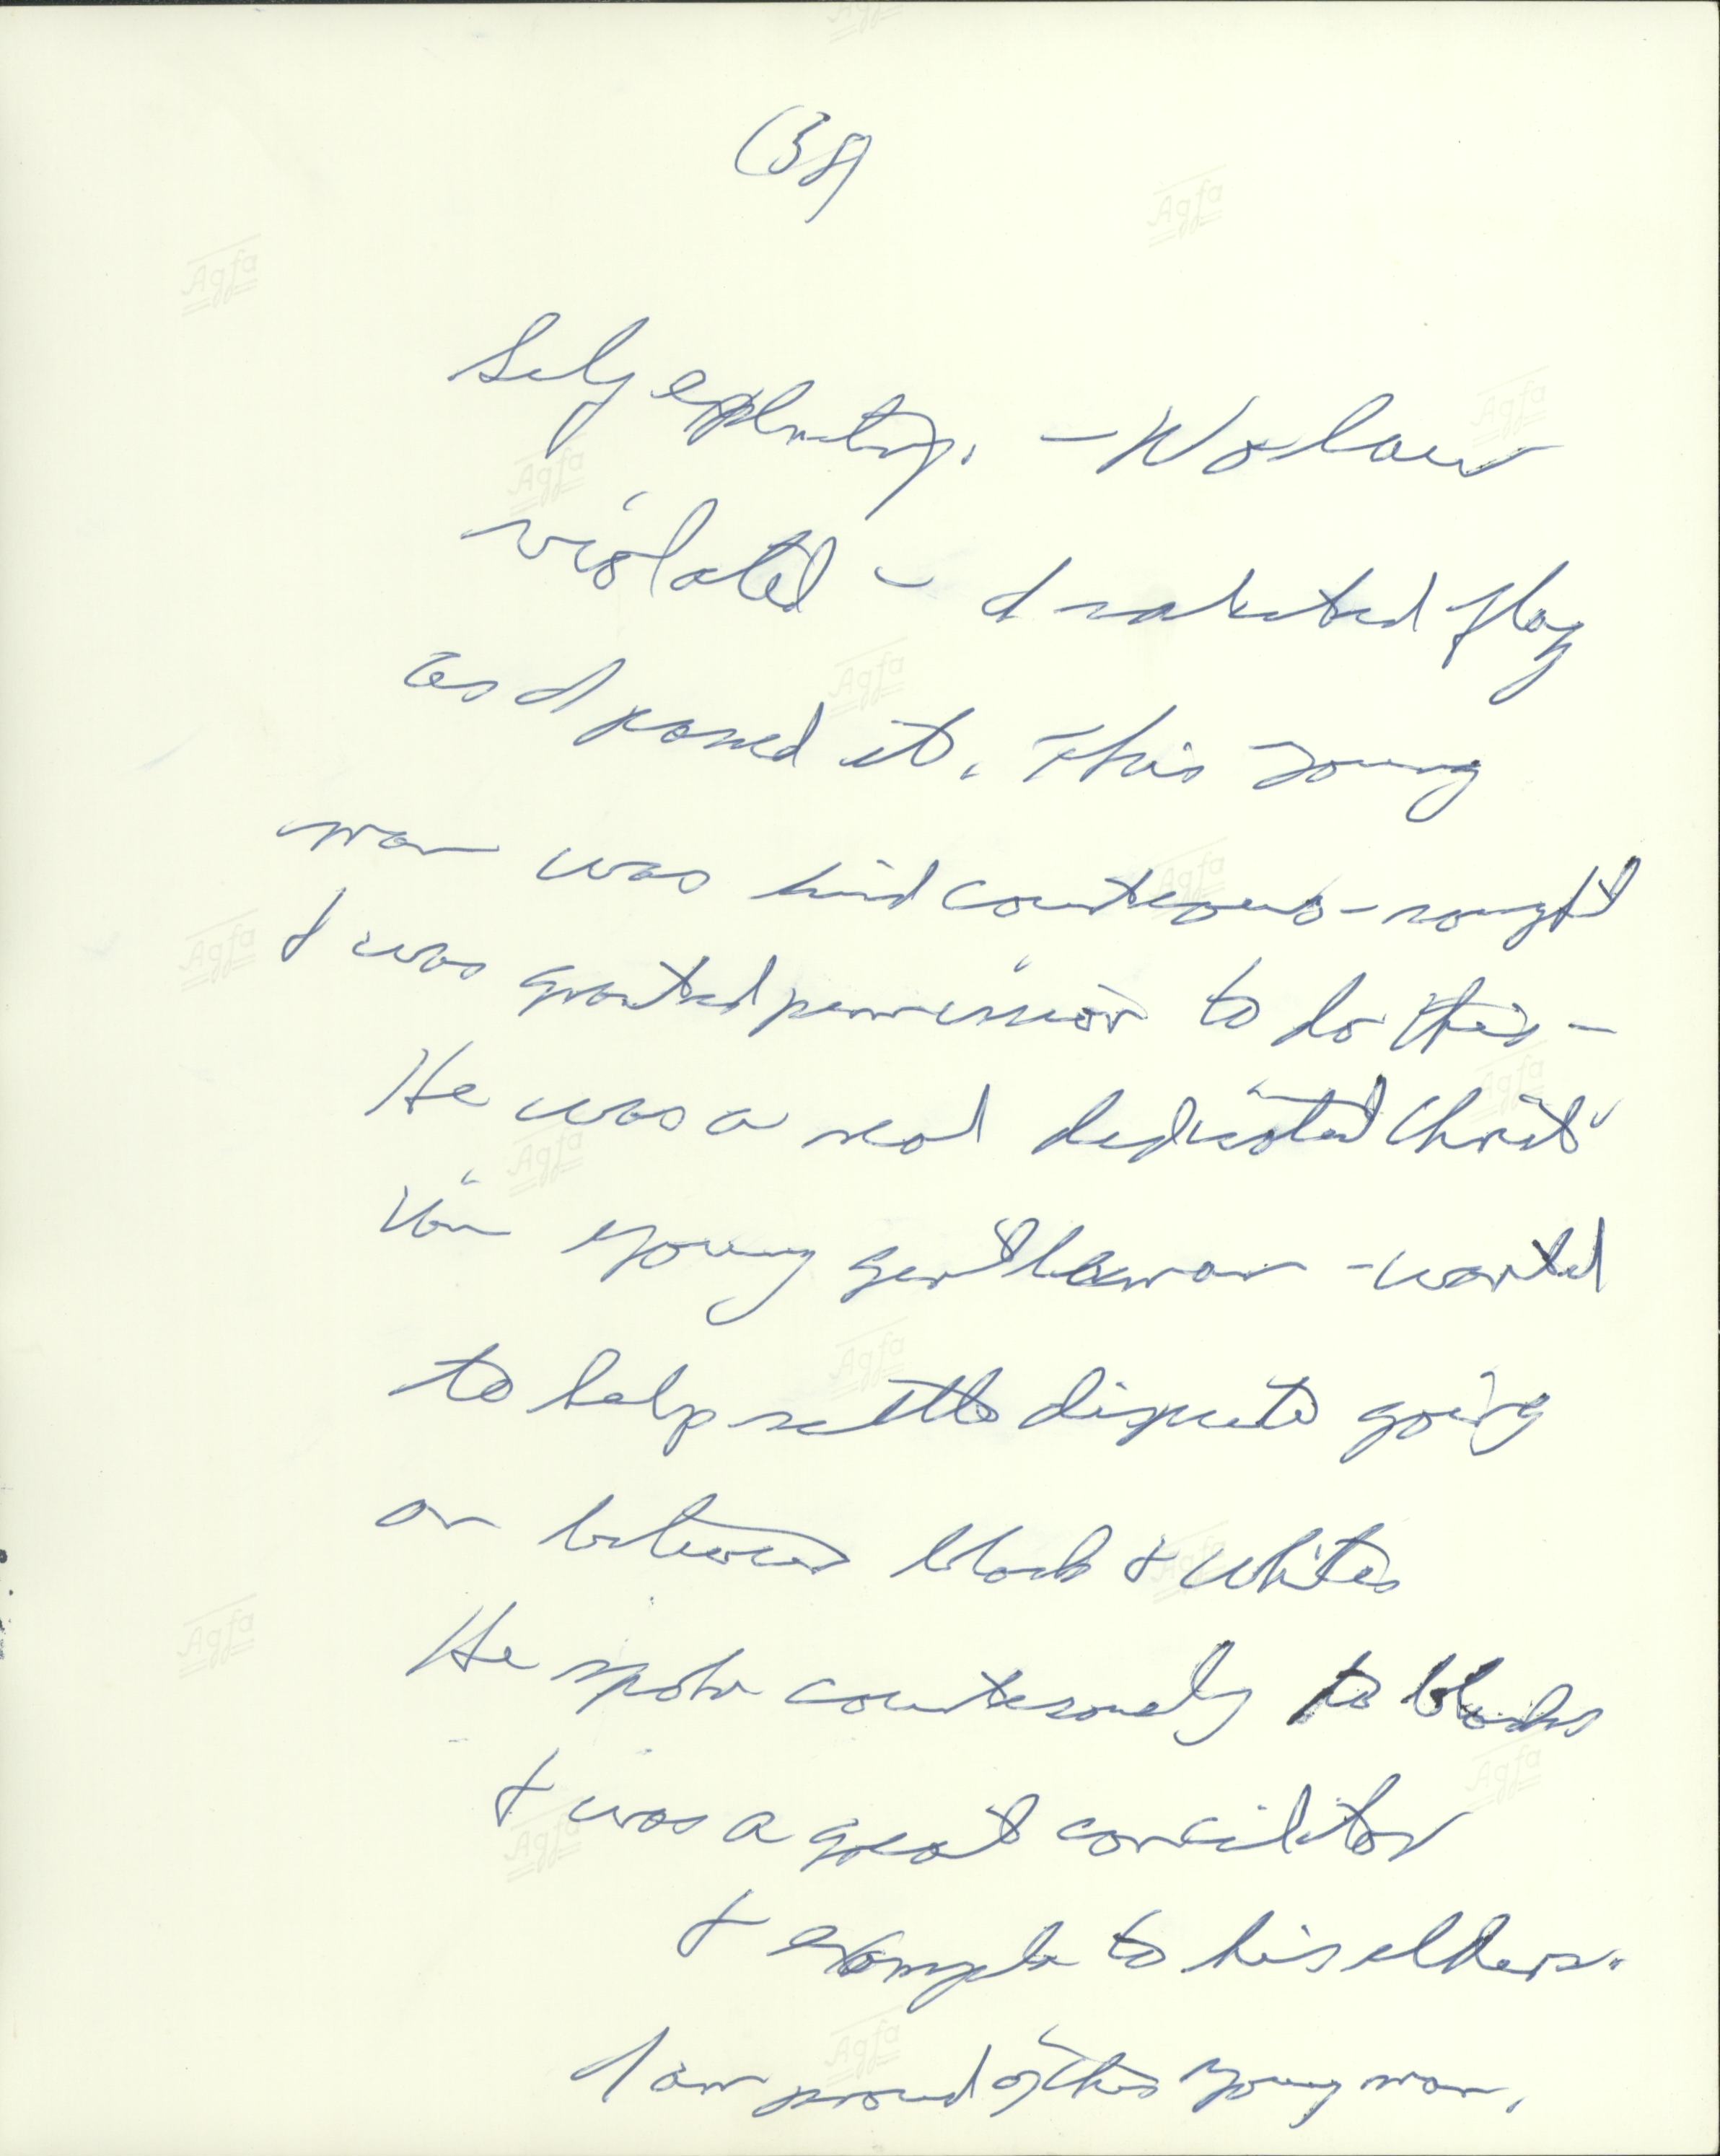 (38)
Self explantory. - No law
violated - I saluted flag
as I passed it. This young
man was kind courteous - sought
& was granted permission to do this -
He was a real dedicated Christ
ian young gentleman - wanted
to help settle dispute going
on between black & whites
He spoke courteously to blacks
& was a great conciliator
& example to his elders.
I am proud of this young man.